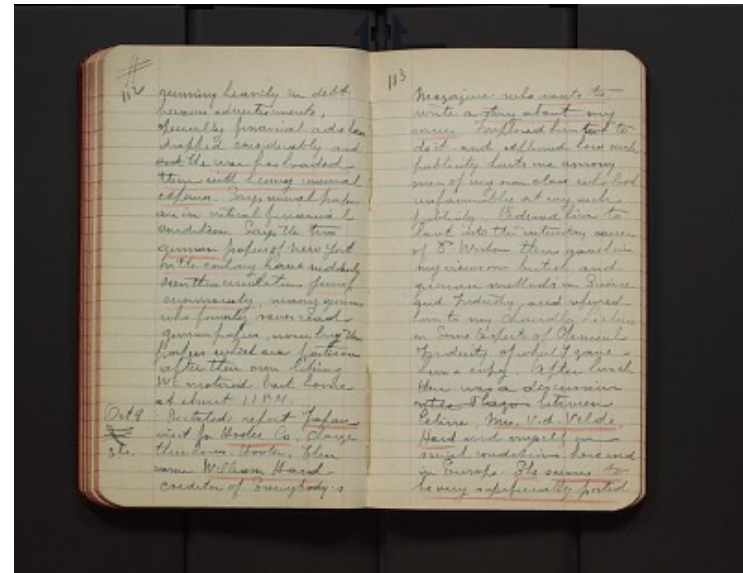 112
running heavily in debt
because advertisements,
specially financial ads have
dropped considerably and
the war has loaded
them with heavy unusual
expenses. Says several papers
are in critical financial
condition. Says the two
german papers of New York
on the contrary have suddenly
seen their circulation jump
enormously, many germans
who formerly never read
german papers, now buy the
papers which are partisan
after their own liking
We motored back home
at about 11 P.M.
Oct 9
Dictated report Japan
visit for Hooker Co.
then came William Hard
editor of Everybody's
113
Magazine who wants to
write a story about my
career. Implored him not to
do it and explained how such
publicity hurts me among
men of my own class who look
unfavorably at any such
publicity. Advised him to
look into the interesting career
of Dr Weston then gave him
my views on british and
german methods in Science
and Industry, and referred
him to my Chandler Lecture
on Some Aspects of Chemical
Industry of which I gave
him a copy. After lunch
there was a discussion
between
Celine, Mrs. v.d. Velde,
Hard and myself on
social conditions here and
in Europe. She seems to
be very superficially posted